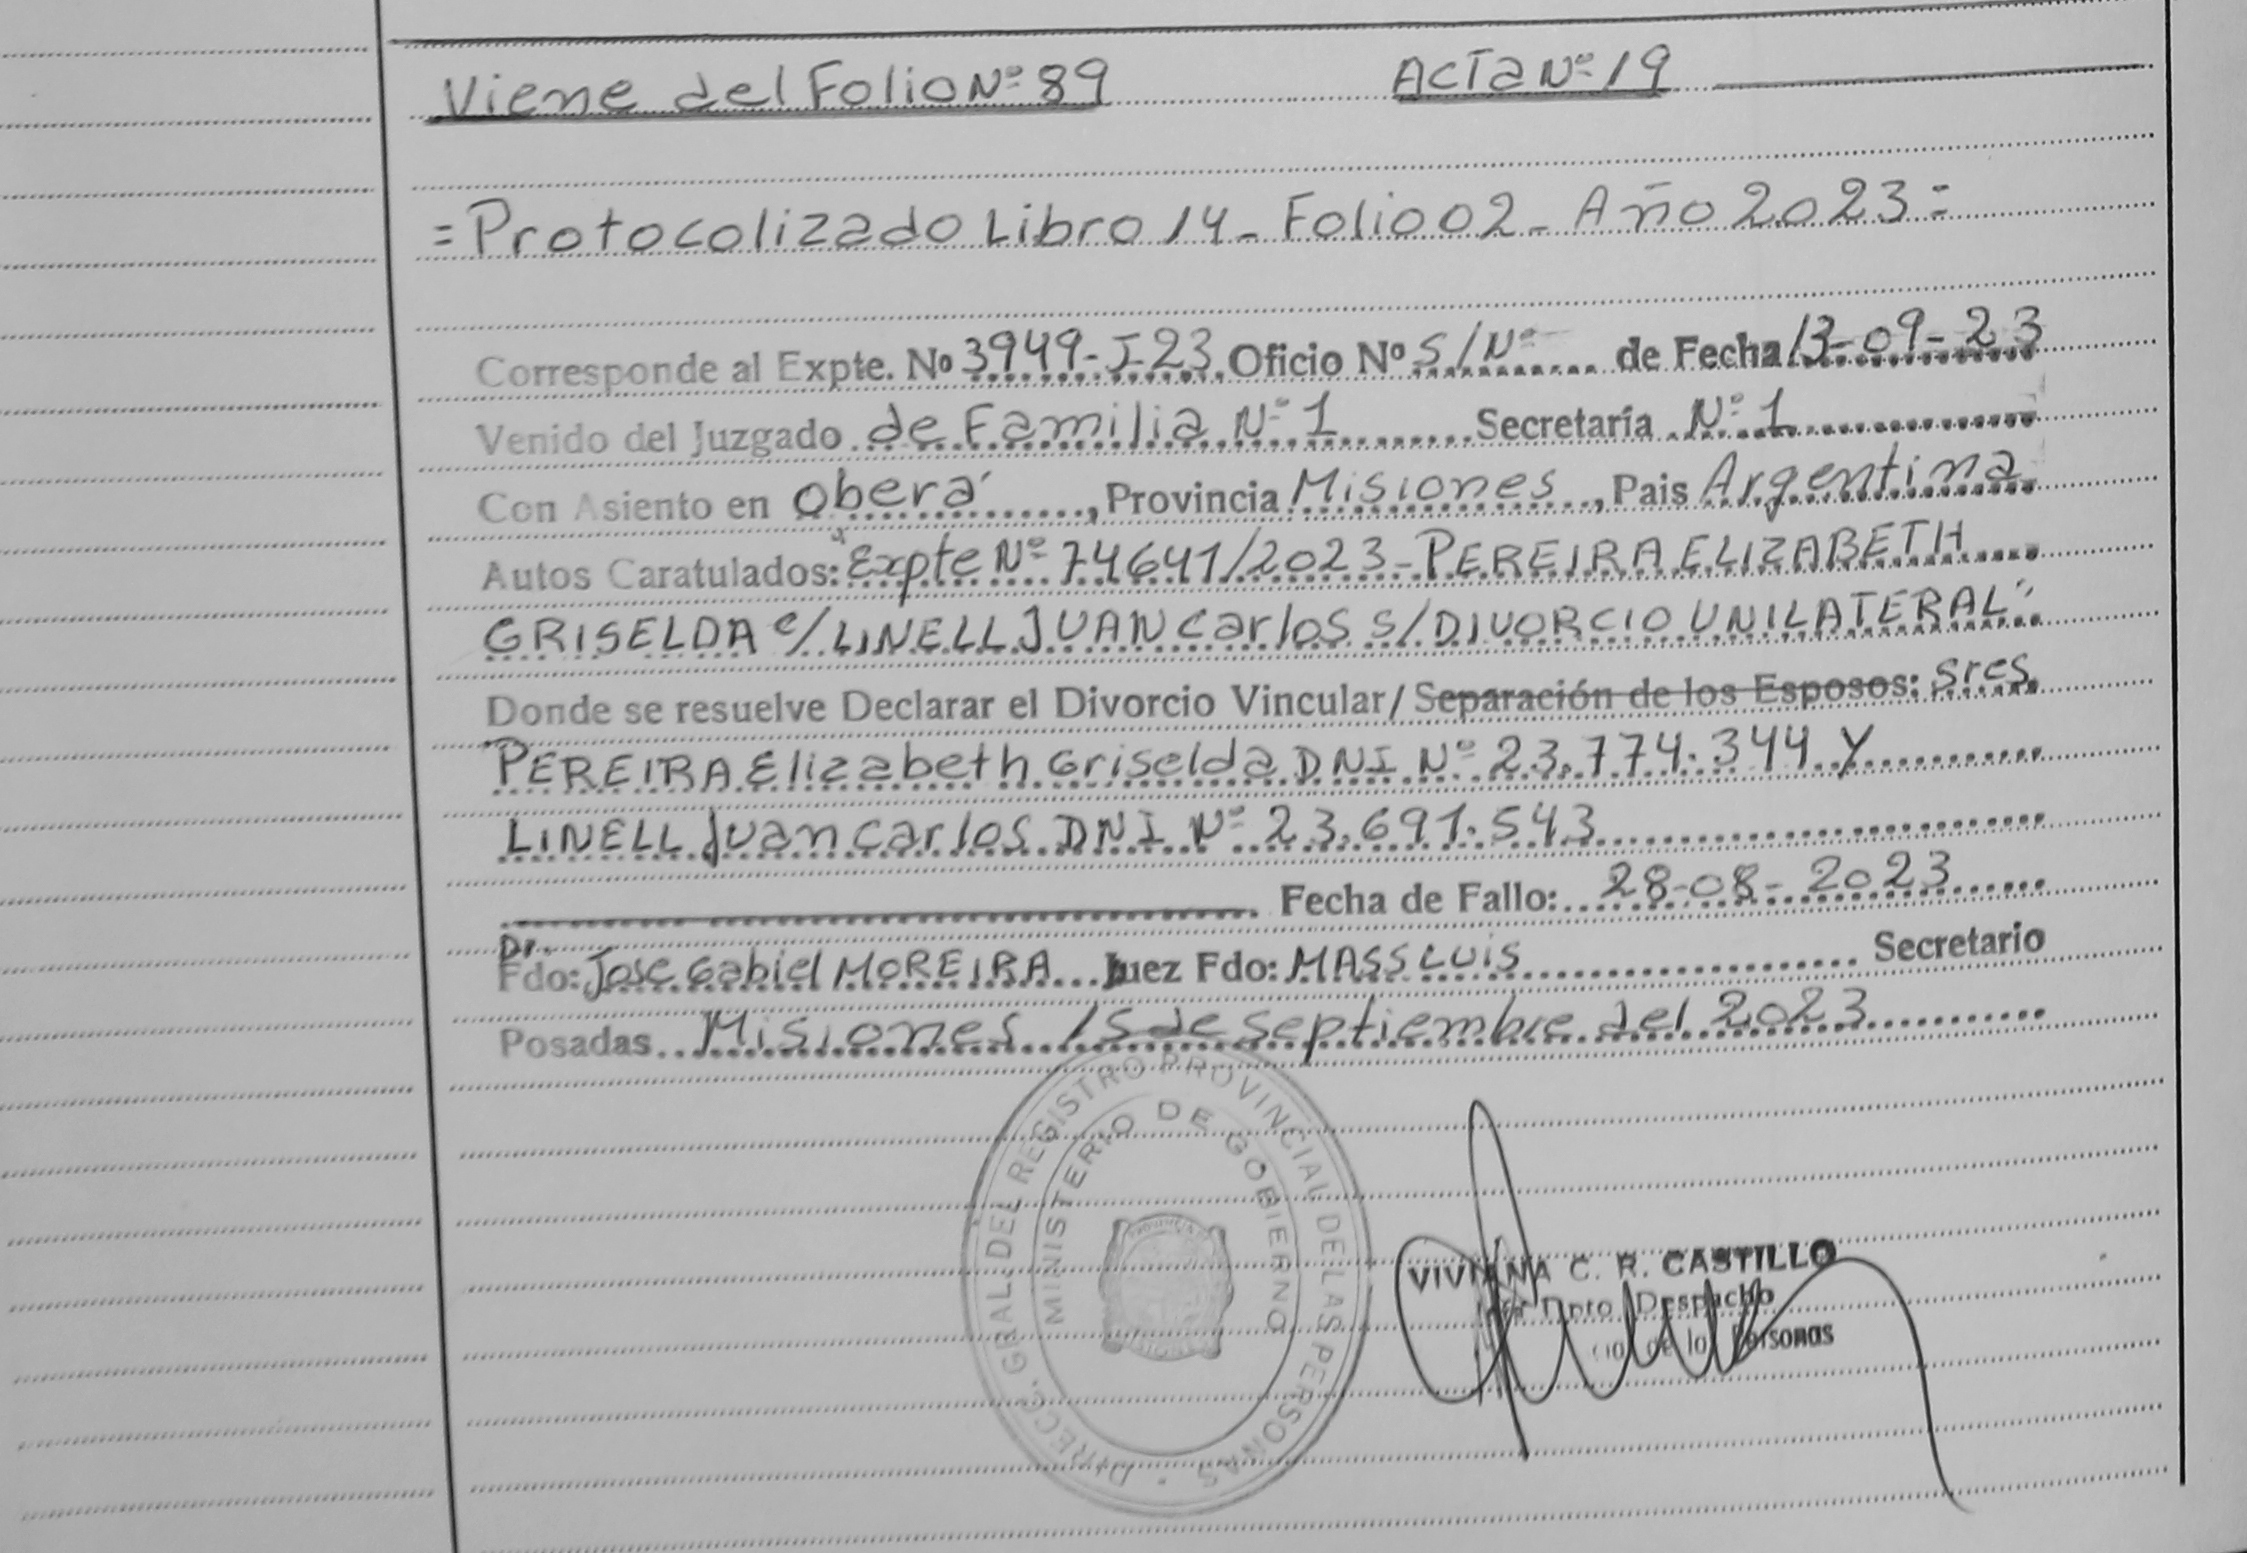 Viene del Folio Nº 89 ACTA Nº 19
= Protocolizado Libro 14 - Folio 02 - Año 2023 =
Corresponde al Expte. No 3949-I-23. Oficio Nº S/Nº de Fecha 13-09-23
Venido del Juzgado de Familia Nº 1 Secretaría Nº 1
Con Asiento en Oberá, Provincia Misiones, Pais Argentina
Autos Caratulados: "Expte Nº 74641/2023 - PEREIRA ELIZABETH
GRISELDA c/ LINELL JUAN Carlos S/ DIVORCIO UNILATERAL"
Donde se resuelve Declarar el Divorcio Vincular/ Separación de los Esposos: sres.
PEREIRA Elizabeth Griselda DNI Nº 23.774.344 y
LINELL Juan Carlos DNI Nº 23.691.543
Fecha de Fallo: 28-08-2023
Dr.
Fdo: Jose Gabiel MOREIRA Juez Fdo: MASS LUIS Secretario
Posadas Misiones 15 de septiembre del 2023
DIRECC. GRAL. DEL REGISTRO PROVINCIAL DE LAS PERSONAS
MINISTERIO DE GOBIERNO
VIVIANA C. R. CASTILLO
Dpto. Despacho
de las Personas